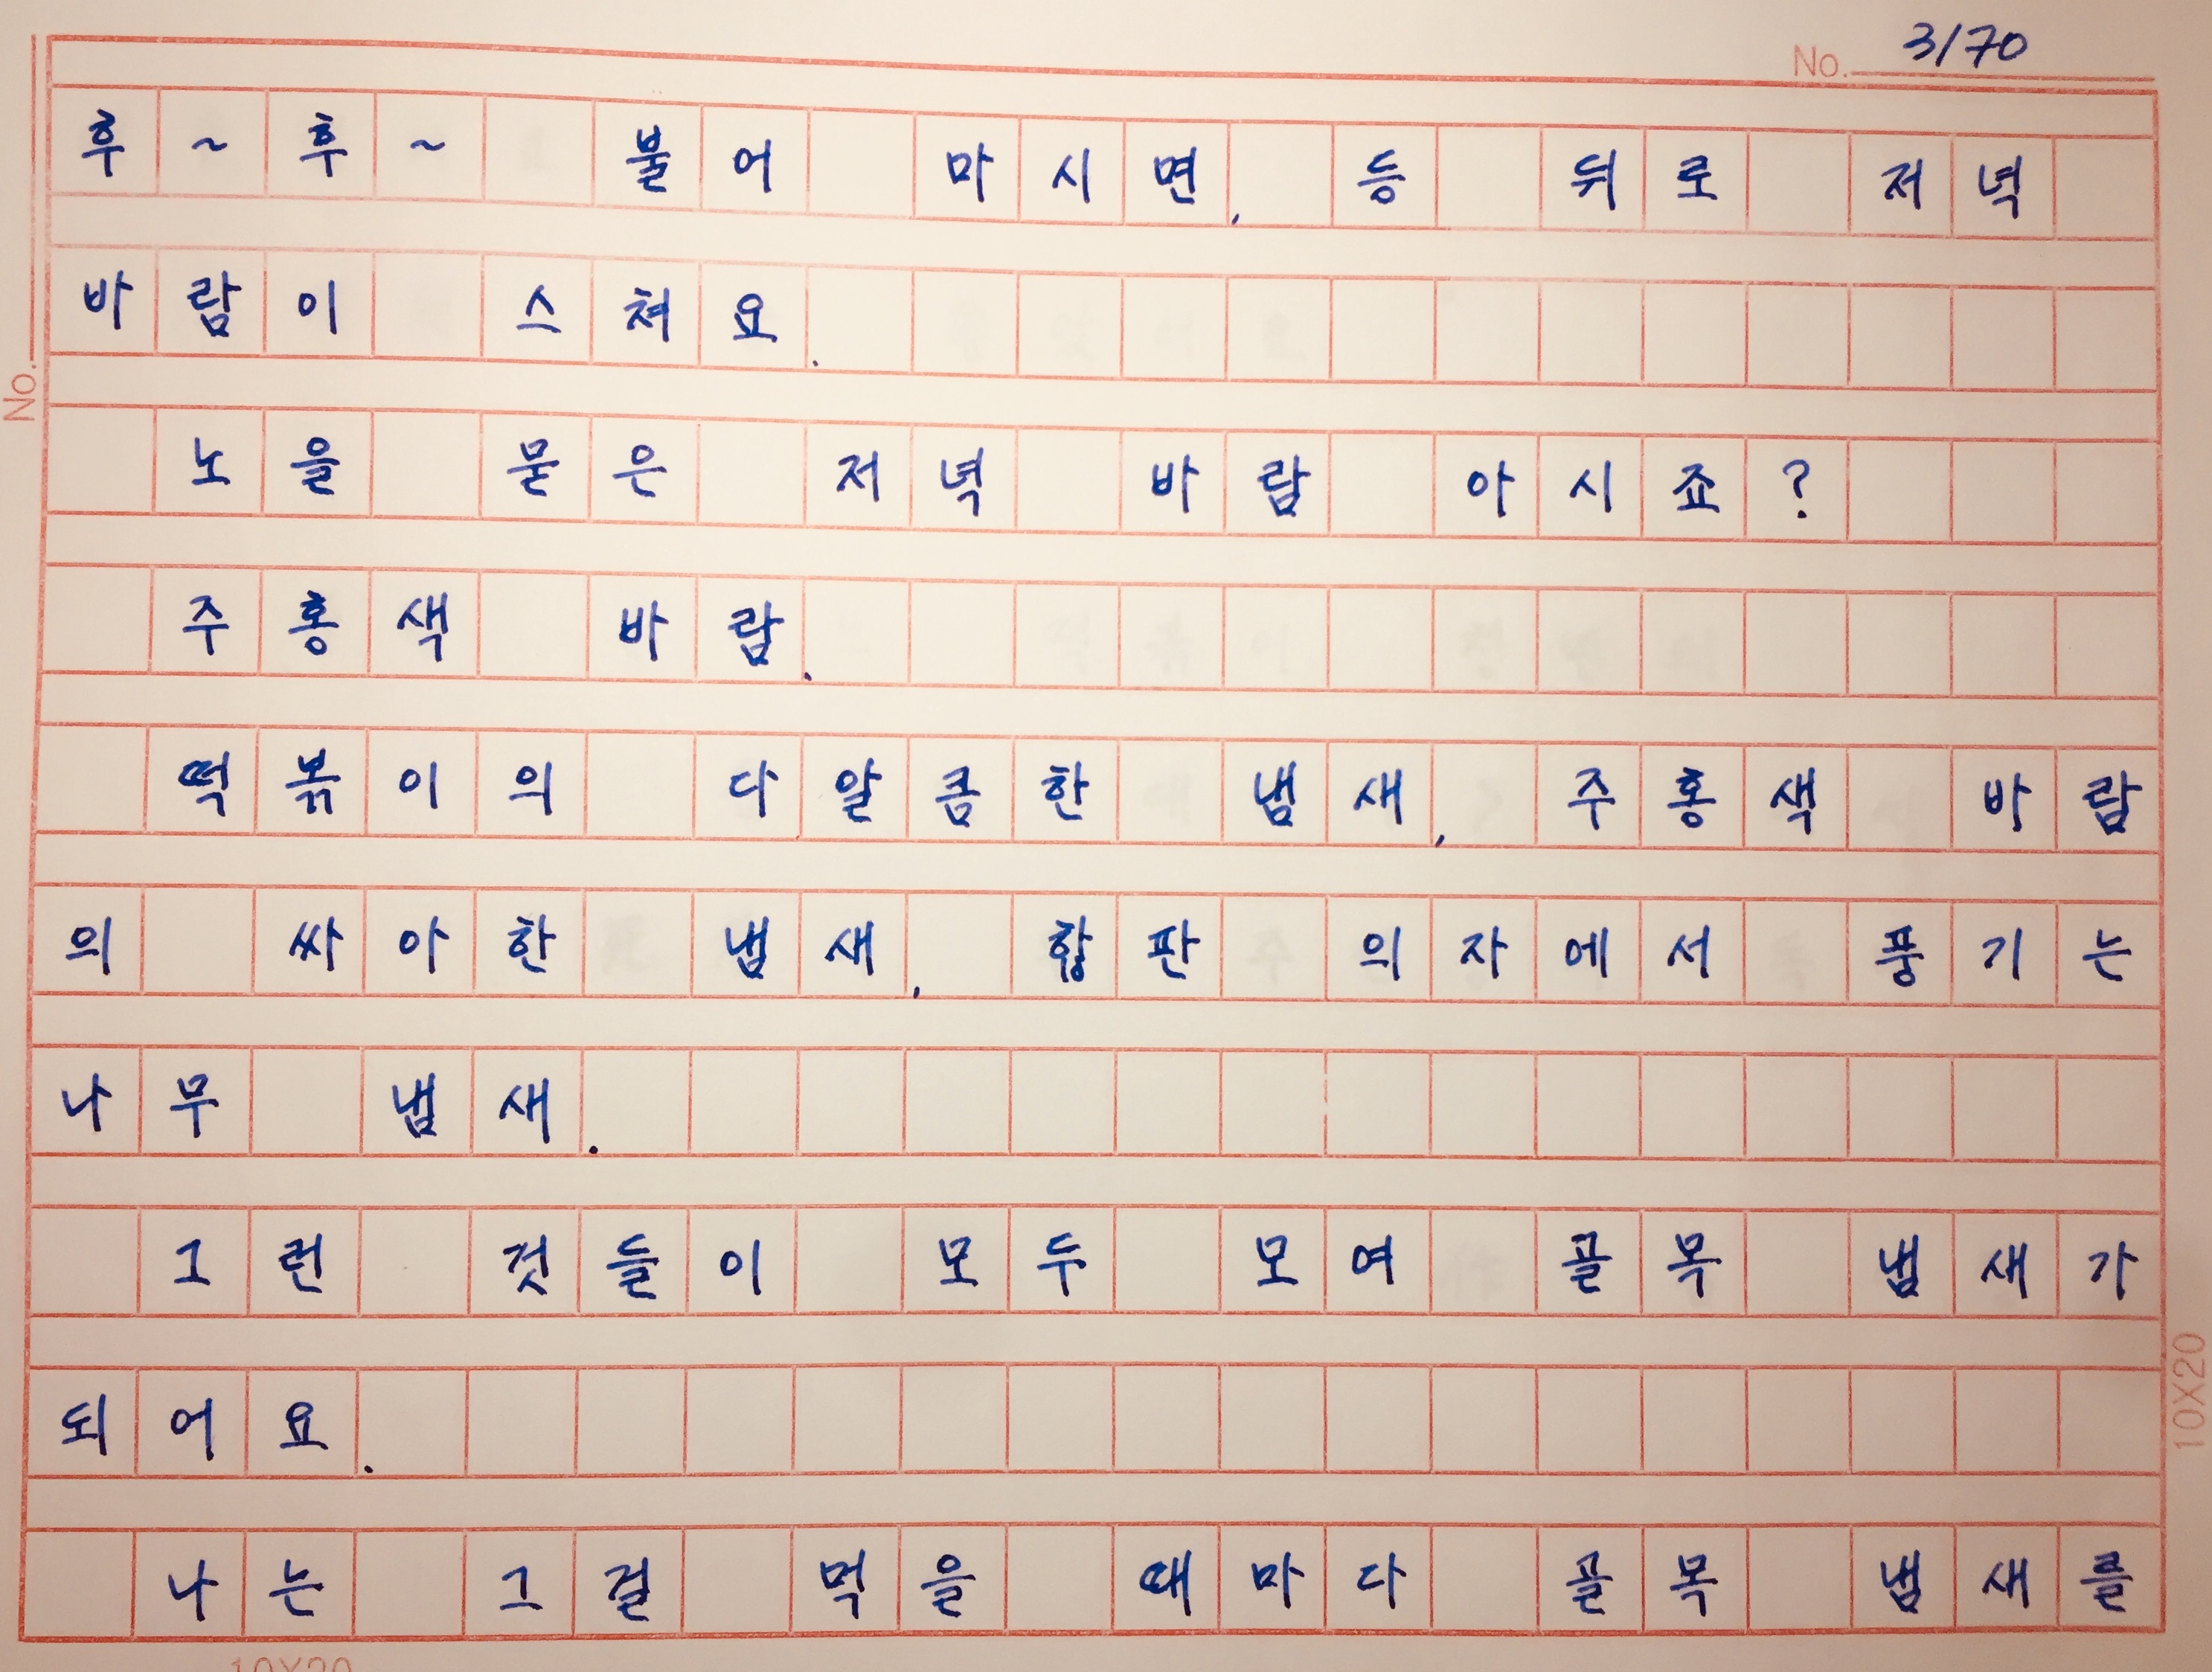 No. 3/70
후~후~ 불어 마시면, 등 뒤로 저녁
바람이 스쳐요.
노을 묻은 저녁 바람 아시죠?
주홍색 바람.
떡볶이의 다알큼한 냄새, 주홍색 바람
의 싸아한 냄새, 합판 의자에서 풍기는
나무 냄새.
그런 것들이 모두 모여 골목 냄새가
되어요.
나는 그걸 먹을 때마다 골목 냄새를
No.
10X20
10X20